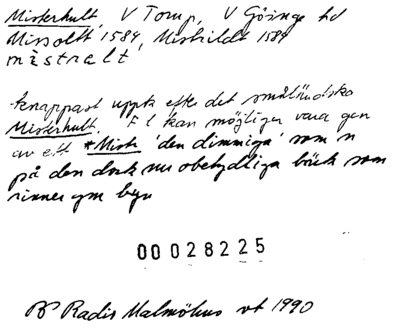 Misterhult, V Torup, V Göinge hd
Missollt 1584, Misthildt 1584
mistralt
knappast uppk efter det småländska
Misterhult. F l kan möjligen vara gen
av ett *Mist 'den dimmiga' som n
på den dock nu obetydliga bäck som
rinner gm byn
00028225
Radis Malmöhus vt 1990